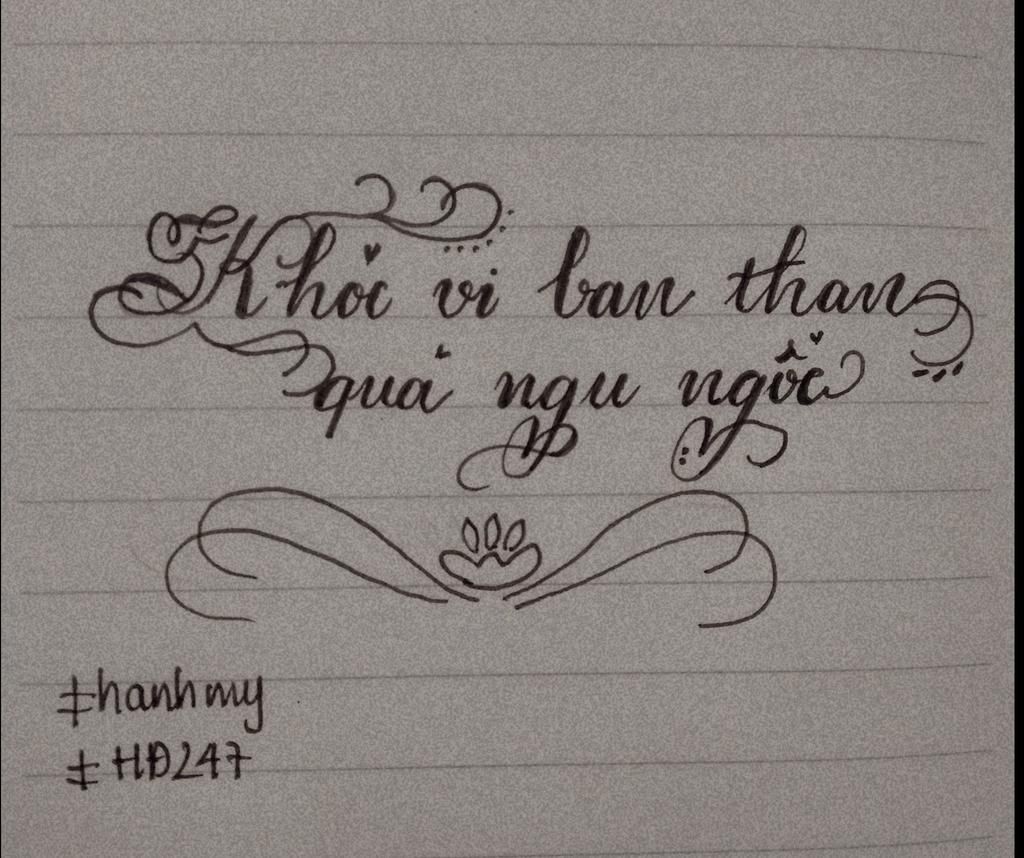 Khóc vi ban than
quá ngu ngốc
‡hanhmy
‡HĐ247